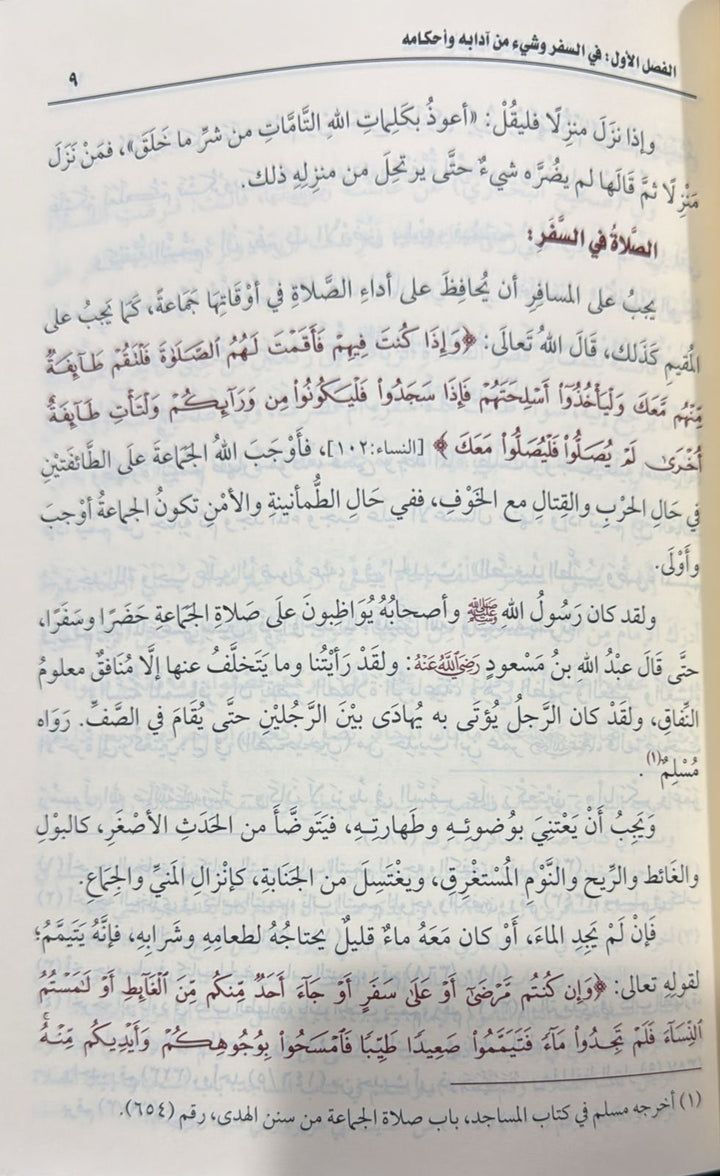 الفصل الأول: في السفر وشيء من آدابه وأحكامه
٩
وإذا نزَلَ منزِلًا فليقُلْ: «أعوذُ بكَلِماتِ اللهِ التَّامَّاتِ من شرِّ ما خَلَقَ»، فمَنْ نَزَلَ
مَنْزِلًا ثمَّ قَالَها لم يضُرَّه شيءٌ حتَّى يرتحِلَ من منزِلِهِ ذلك.
الصَّلاةُ في السَّفَرِ:
يجبُ على المسافرِ أن يُحافِظَ على أداءِ الصَّلاةِ في أوْقَاتِهَا جَمَاعةً، كَمَا يَجبُ على
المُقيمِ كَذَلك، قَالَ اللهُ تَعالَى: ﴿وَإِذَا كُنتَ فِيهِمْ فَأَقَمْتَ لَهُمُ ٱلصَّلَوٰةَ فَلْتَقُمْ طَآئِفَةٌ
مِّنْهُم مَّعَكَ وَلْيَأْخُذُوٓا۟ أَسْلِحَتَهُمْ فَإِذَا سَجَدُوا۟ فَلْيَكُونُوا۟ مِن وَرَآئِكُمْ وَلْتَأْتِ طَآئِفَةٌ
أُخْرَىٰ لَمْ يُصَلُّوا۟ فَلْيُصَلُّوا۟ مَعَكَ﴾ [النساء:١٠٢]، فأَوْجَبَ اللهُ الجَمَاعةَ علَى الطَّائفَتَيْنِ
في حَالِ الحرْبِ والقِتالِ مع الخَوْفِ، ففي حَالِ الطُّمأنينةِ والأمْنِ تكونُ الجماعةُ أوْجبَ
وأَوْلَى.
ولقد كان رَسُولُ اللهِ ﷺ وأصحابُهُ يُوَاظِبونَ علَى صَلاةِ الجَمَاعةِ حَضَرًا وسَفَرًا،
حتَّى قَالَ عبْدُ اللهِ بنُ مَسْعودٍ رَضِيَ اللَّهُ عَنْهُ: ولقَدْ رَأيْتُنا وما يَتَخلَّفُ عنها إلَّا مُنَافقٌ معلومُ
النِّفاقِ، ولقَدْ كان الرَّجلُ يُؤتَى به يُهَادَى بيْنَ الرَّجُليْنِ حتَّى يُقَامَ في الصَّفِّ. رَوَاه
مُسْلِمٌ(١).
وَيَجِبُ أَنْ يَعْتَنِيَ بوُضوئِـهِ وطَهارتِـهِ، فيَتَوضَّأَ من الحَدَثِ الأصْغَرِ، كالبوْلِ
والغَائط والرِّيح والنَّوْمِ المُسْتغْرِقِ، ويغْتَسِلَ من الجَنَابةِ، كإنْزالِ المَنيِّ والجِمَاعِ.
فَإنْ لَمْ يَجِدِ الماءَ، أوْ كان مَعَهُ ماءٌ قليلٌ يحتاجُهُ لطعامِهِ وشَرَابِهِ، فإنَّهُ يَتَيمَّمُ؛
لقولِهِ تعالى: ﴿وَإِن كُنتُم مَّرْضَىٰٓ أَوْ عَلَىٰ سَفَرٍ أَوْ جَآءَ أَحَدٌ مِّنكُم مِّنَ ٱلْغَآئِطِ أَوْ لَـٰمَسْتُمُ
ٱلنِّسَآءَ فَلَمْ تَجِدُوا۟ مَآءً فَتَيَمَّمُوا۟ صَعِيدًا طَيِّبًا فَٱمْسَحُوا۟ بِوُجُوهِكُمْ وَأَيْدِيكُم مِّنْهُ ۚ
(١) أخرجه مسلم في كتاب المساجد، باب صلاة الجماعة من سنن الهدى، رقم (٦٥٤).